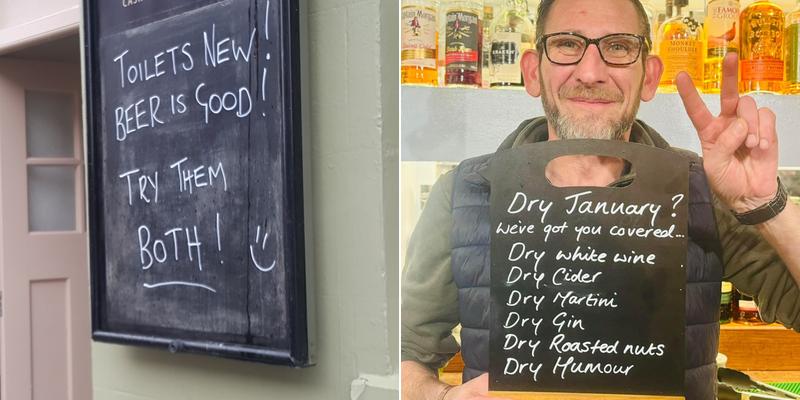 TOILETS NEW!
BEER IS GOOD!
TRY THEM
BOTH!
Dry January?
We've got you covered...
Dry white wine
Dry Cider
Dry Martini
Dry Gin
Dry Roasted nuts
Dry Humour
Captain Morgan
Captain Morgan
KRAKEN
MONKEY
SHOULDER
FAMOUS